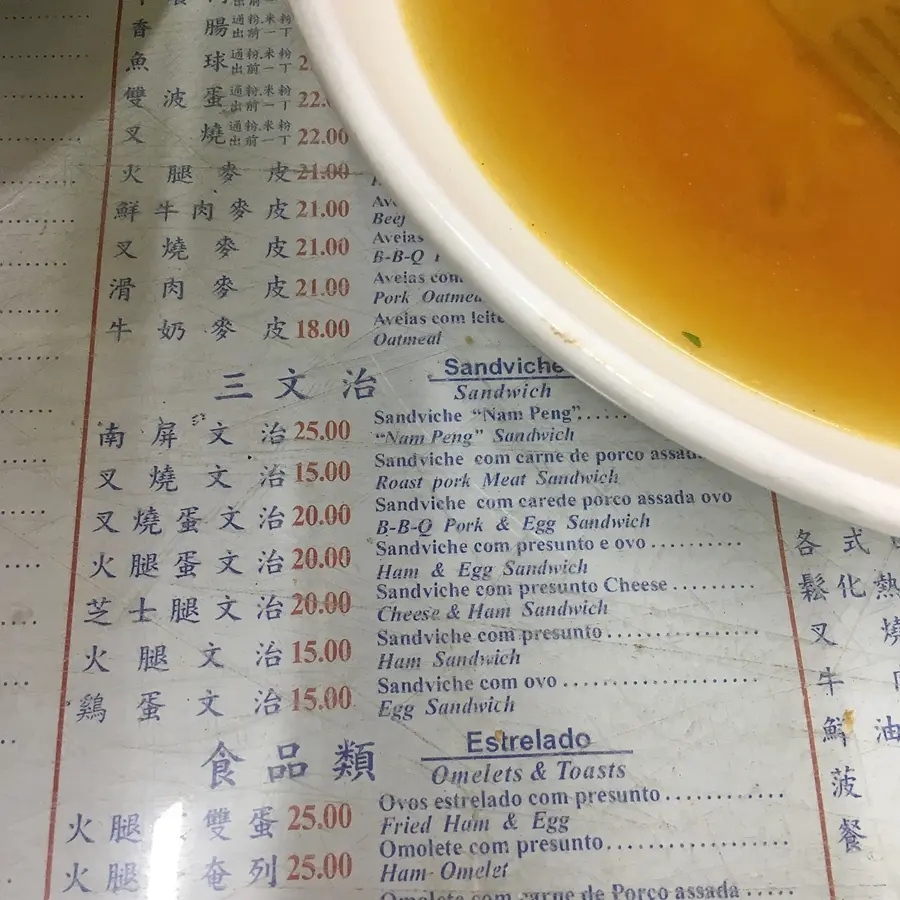 香 腸 通粉.米粉 出前一丁
魚 球 通粉.米粉 出前一丁
雙波蛋 通粉.米粉 出前一丁 22.
叉 燒 通粉.米粉 出前一丁 22.00
火腿麥皮 21.00
鮮牛肉麥皮 21.00
Beef
叉燒麥皮 21.00 Aveias
B-B-Q
滑肉麥皮 21.00 Aveias com
Pork Oatmeal
牛奶麥皮 18.00 Aveias com leite
Oatmeal
三文治 Sandviche
Sandwich
南屏文治 25.00 Sandviche "Nam Peng".......
"Nam Peng" Sandwich
叉燒文治 15.00 Sandviche com carne de porco assada
Roast pork Meat Sandwich
叉燒蛋文治 20.00 Sandviche com carede porco assada ovo
B-B-Q Pork & Egg Sandwich
火腿蛋文治 20.00 Sandviche com presunto e ovo ..........
Ham & Egg Sandwich
芝士腿文治 20.00 Sandviche com presunto Cheese .........
Cheese & Ham Sandwich
火腿文治 15.00 Sandviche com presunto .................
Ham Sandwich
鷄蛋文治 15.00 Sandviche com ovo ....................
Egg Sandwich
食品類 Estrelado
Omelets & Toasts
火腿 雙蛋 25.00 Ovos estrelado com presunto .............
Fried Ham & Egg
火腿 奄列 25.00 Omolete com presunto....................
Ham-Omelet
Omolete com carne de Porco assada .....
各式
鬆化熱
叉燒
牛
鮮油
菠
餐